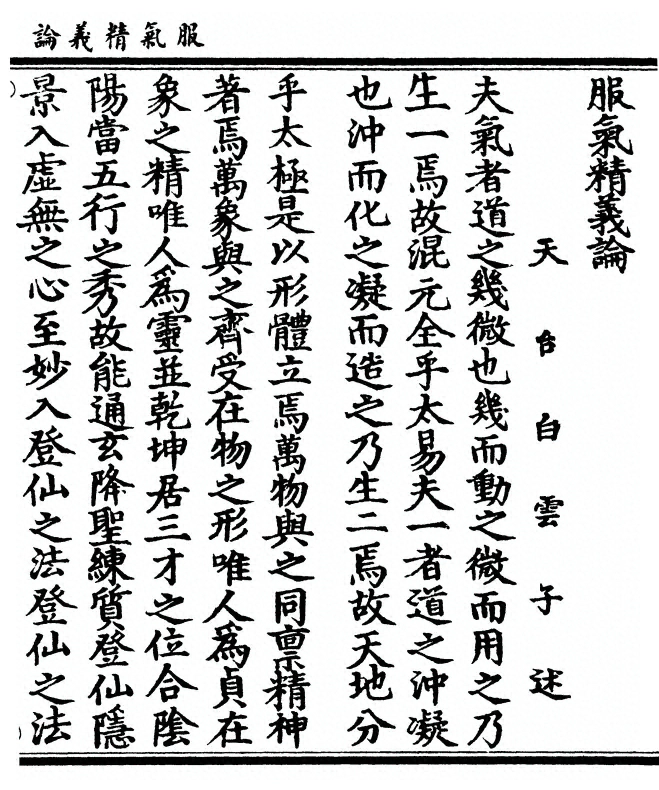 服氣精義論
服氣精義論
天台白雲子述
夫氣者道之幾微也幾而動之微而用之乃
生一焉故混元全乎太易夫一者道之沖凝
也沖而化之凝而造之乃生二焉故天地分
乎太極是以形體立焉萬物與之同禀精神
著焉萬象與之齊受在物之形唯人爲貞在
象之精唯人爲靈並乾坤居三才之位合陰
陽當五行之秀故能通玄降聖練質登仙隱
景入虛無之心至妙入登仙之法登仙之法